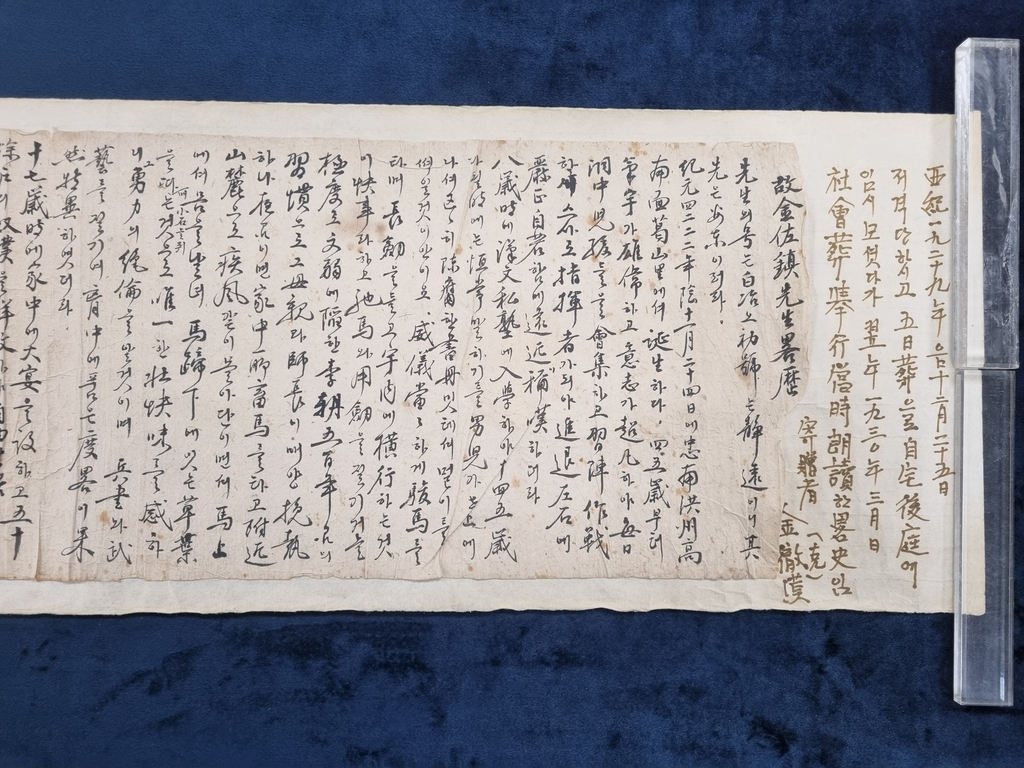 西紀一九二九年 음十二月二十五日
저격당하시고 五日葬으로 自宅後庭에
임시모셧다가 翌年 一九三〇年 三月 日
社會葬 擧行 當時 朗讀한 畧史임
寄贈者 金徹漢
(克)
故金佐鎭先生畧歷
先生의号는白冶오初號는靜遠이니其
先은安東이러라.
紀元四二二二年陰十一月二十四日에忠南洪州高
南面葛山里에서誕生하다. 四五歲부터
氣宇가雄偉하고意志가超凡하야每日
洞中兒孩들을會集하고習陣作戰
하며 指揮者가되야進退左右에
嚴正自若함에遠近이稱嘆하더라
八歲時에漢文私塾에入學하야十四五歲
되될時에는恒常말하기를男兒가世上에
나서 陳腐한書冊밋헤서 멀이를
썩일것이안이오. 威儀堂々하게駿馬를
타며 長劒을들고宇內에橫行하는것
이快事라하고馳馬와用劒을질기거늘
極度로文弱에陷한李朝五百年
習慣으로母親과師長이매양挽執
하나夜 면家中所畜馬를타고附近
山麓으로疾風갓이몰아단이면서馬上
에서몸을날녀 馬蹄下에잇는草葉
을따는것으로唯一한壯快味를感하
니勇力의絶倫을알것이며 兵書와武
藝를질기며胸中에품은度畧이果
然特異하엿더라.
十七歲時에家中에大宴을設하고五十